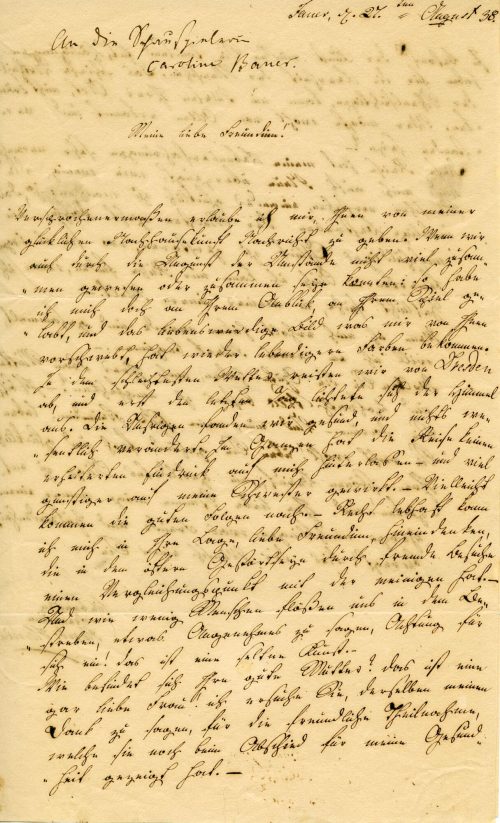 Jauer, d. 27. ten August 38.
An die Schauspielerin
Caroline Bauer.
Meine liebe Freundin!
Versprochenermaaßen erlaube ich mir, Ihnen von meiner
glücklichen Nachhausekunft Nachricht zu geben. Wenn wir
auch durch die Ungunst der Umstände nicht viel zusam„
„men gewesen oder zusammen seyn konnten: so habe
ich mich doch an Ihrem Anblick, an Ihrem Spiel ge„
„labt, und das liebenswürdige Bild was mir von Ihnen
vorschwebt, hat wieder lebendigere Farben bekommen.
In dem schlechtesten Wetter reisten wir von Dresden
ab, und erst den letzten Tag lichtete sich der Himmel
aus. Die Unsrigen fanden wir gesund, und nichts we„
„sentlich verändert. Im Ganzen hat die Reise keinen
erheiterten Eindruck auf mich hinterlassen – und viel
günstiger auf meine Schwester gewirkt. – Vielleicht
kommen die guten Folgen nach. – Recht lebhaft kann
ich mich in Ihre Lage, liebe Freundin, hineindenken,
die in dem öftern Gestörtseyn durch fremde Besuche
einen Vergleichungspunkt mit der meinigen hat. –
Und wie wenig Menschen flößen uns in dem Be„
„streben, etwas Angenehmes zu sagen, Achtung für
sich ein! das ist eine seltne Kunst. –
Wie befindet sich Ihre gute Mutter? das ist eine
gar liebe Frau; ich ersuche Sie, derselben meinen
Dank zu sagen, für die freundliche Theilnahme,
welche sie noch beim Abschied für meine Gesund„
„heit gezeigt hat. –